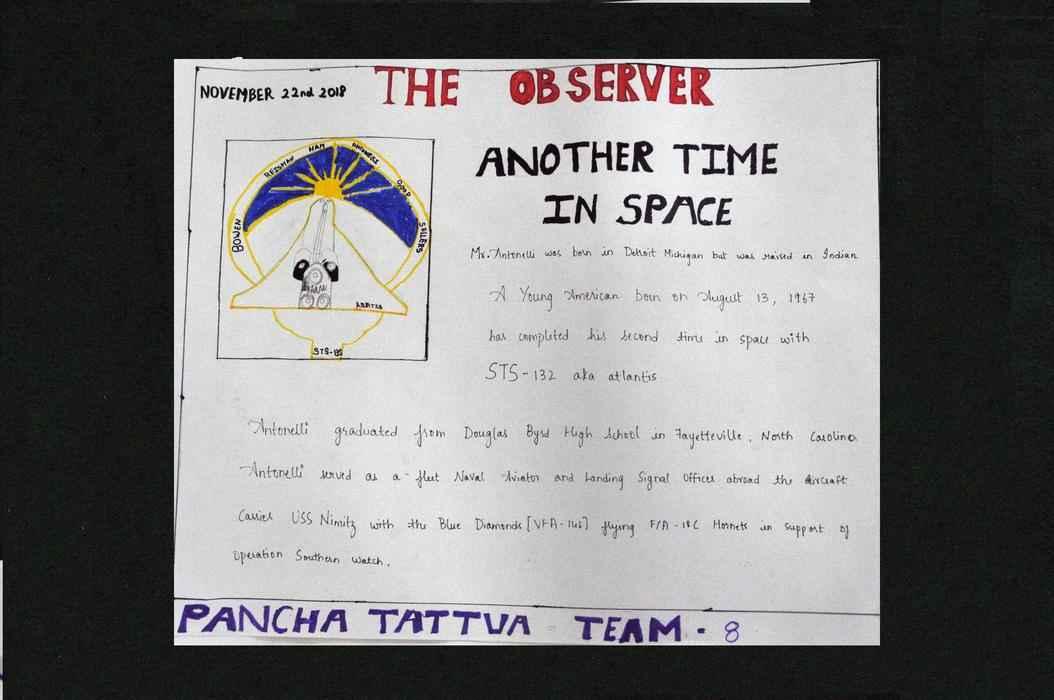 NOVEMBER 22nd 2018
THE OBSERVER
BOWEN
REISMAN
HAM
SELLERS
STS-132
ANOTHER TIME
IN SPACE
Mr. Antonelli was born in Detroit Michigan but was raised in Indian
A Young American born on August 13, 1967
has completed his second time in space with
STS-132 aka atlantis
Antonelli graduated from Douglas Byrd High School in Fayetteville, North Carolina
Antonelli served as a fleet Naval Aviator and Landing Signal Officer abroad the Aircraft
Carrier USS Nimitz with the Blue Diamonds [VFA-146] flying F/A-18C Hornets in support of
Operation Southern Watch.
PANCHA TATTVA TEAM - 8